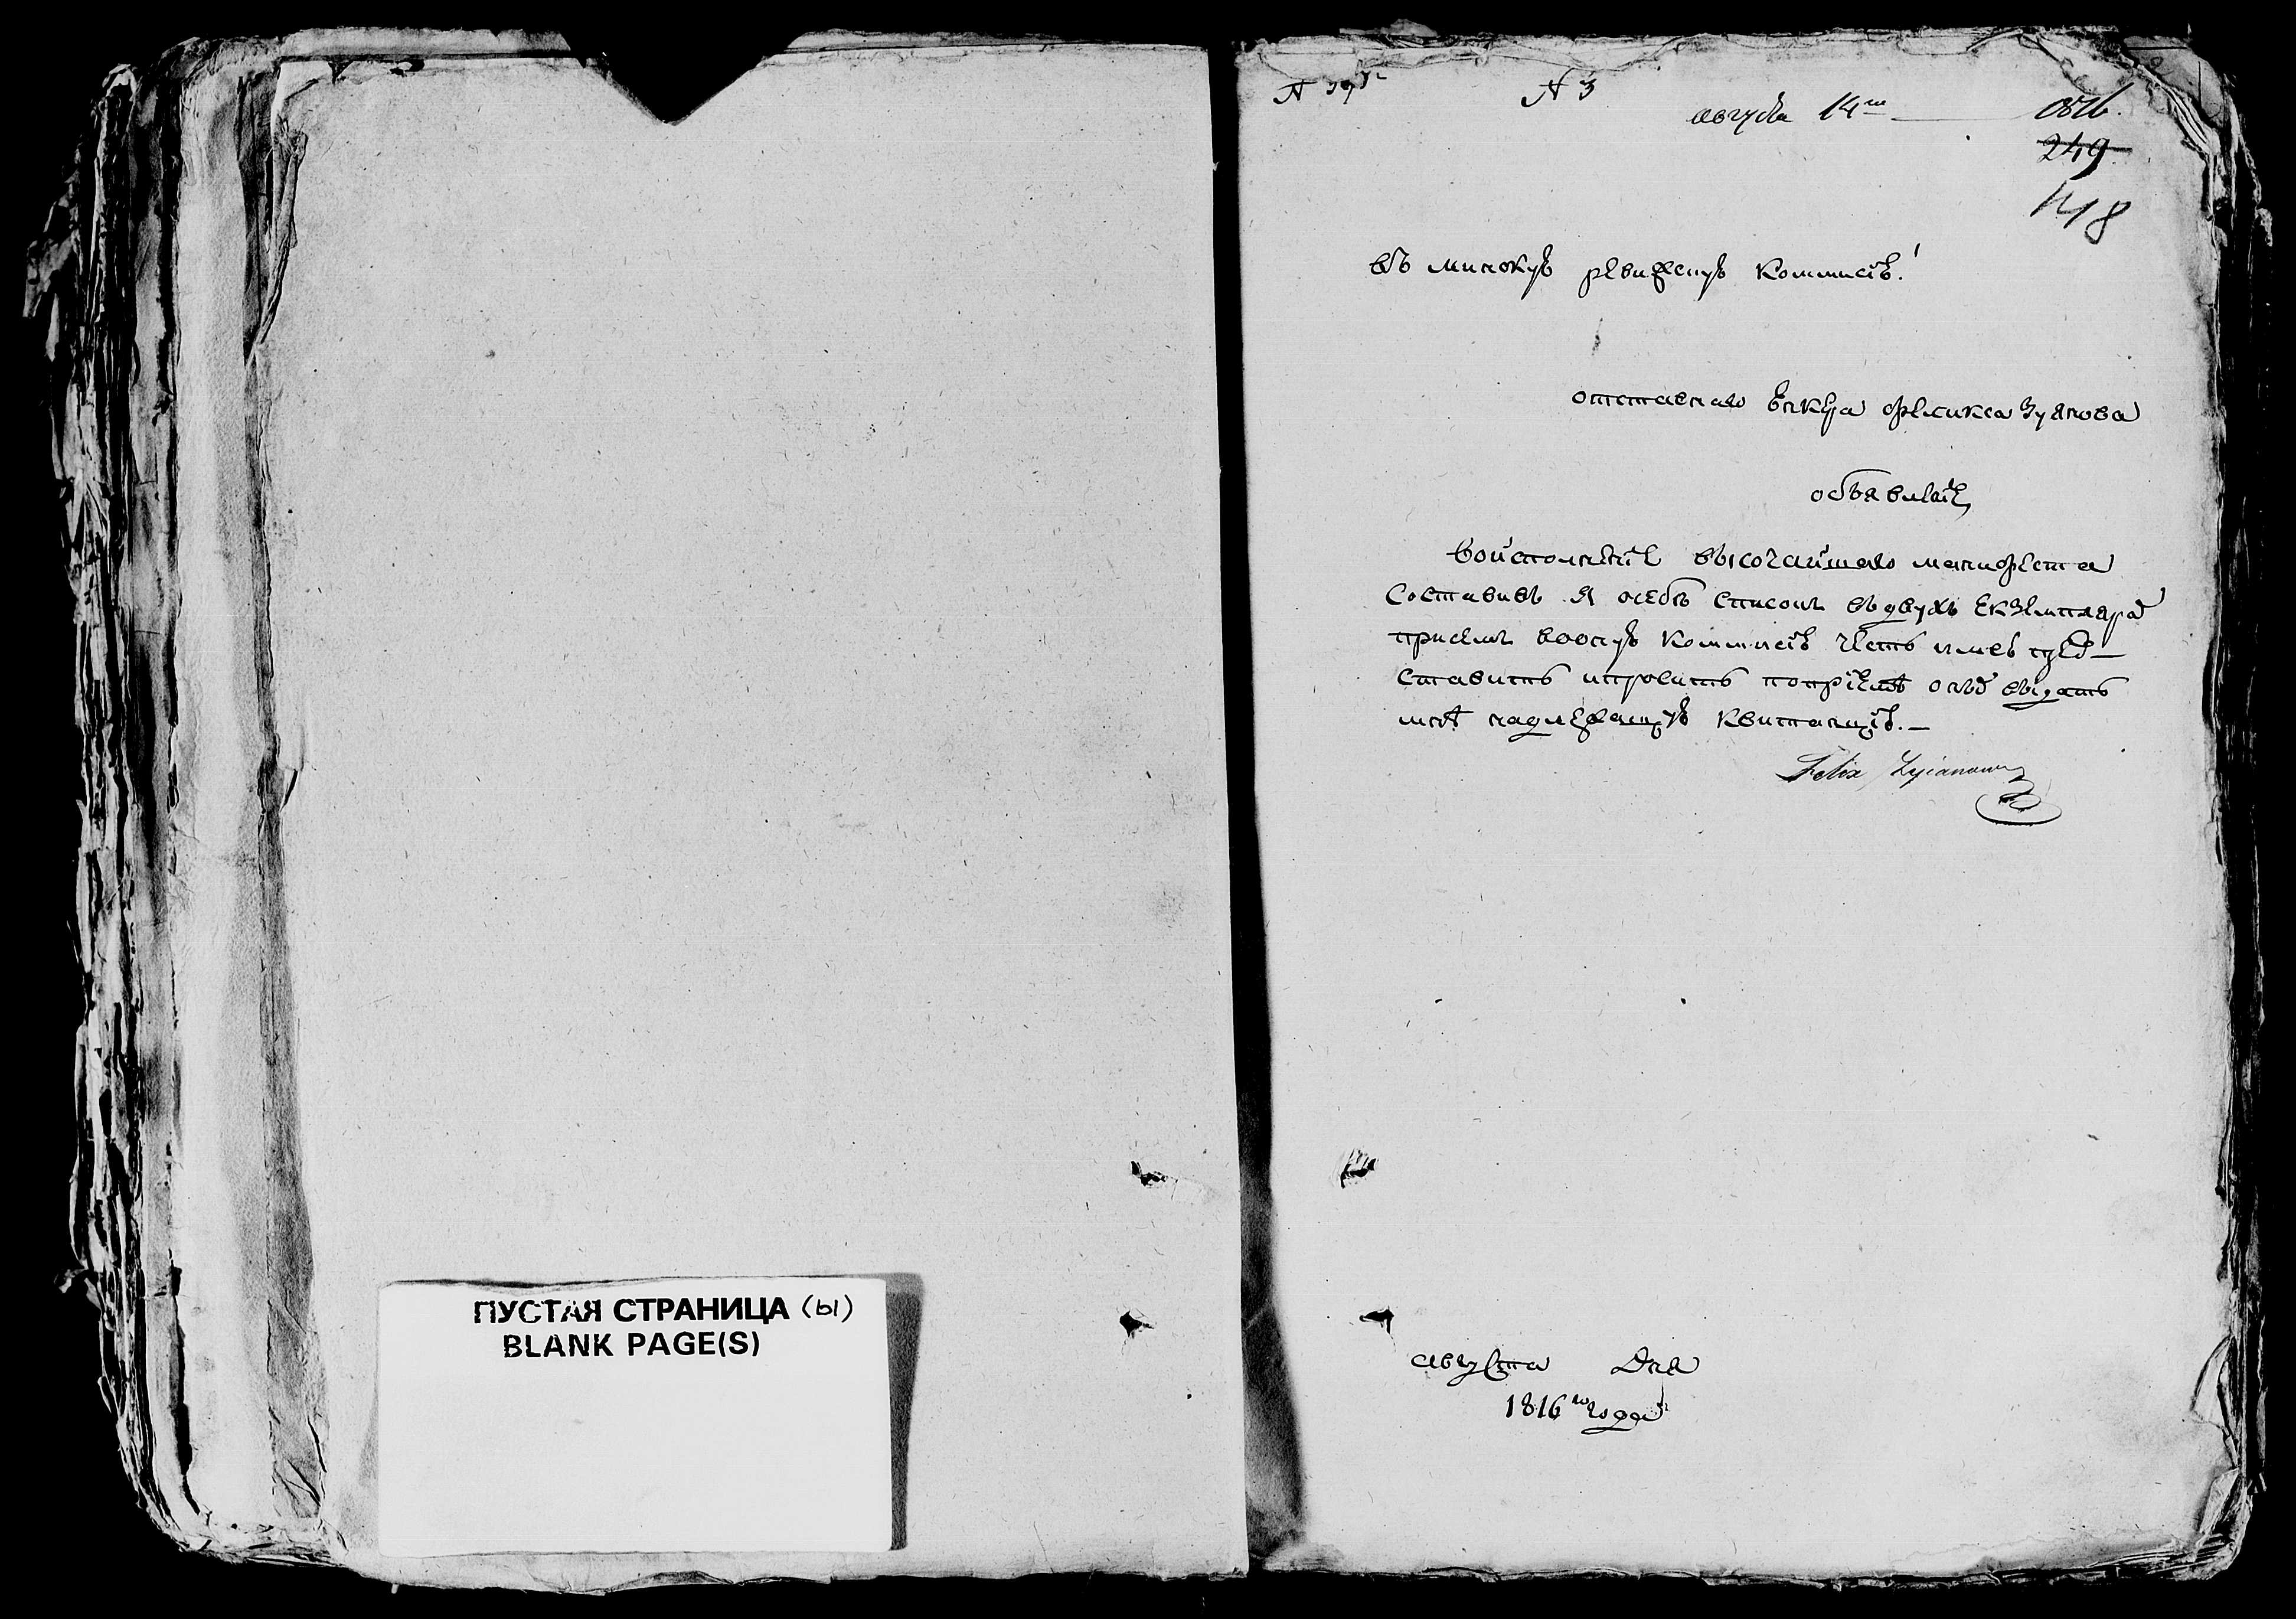 ПУСТАЯ СТРАНИЦА (ы)
BLANK PAGE(S)
№ 3
августа 14го
249
148
въ минскую ревижскую коммисію!
отставнаго юнкера феликса Зуянова
объявленіе
воисполненіе высочайшаго манифеста
составивъ я осебѣ список въ двухъ екземплярах
присем воону коммисію честь имею пред—
ставить ипросить поприеме оных выдать
мнѣ надлежащую квитанцію.—
Felix Zyianow
августа Дня
1816го года